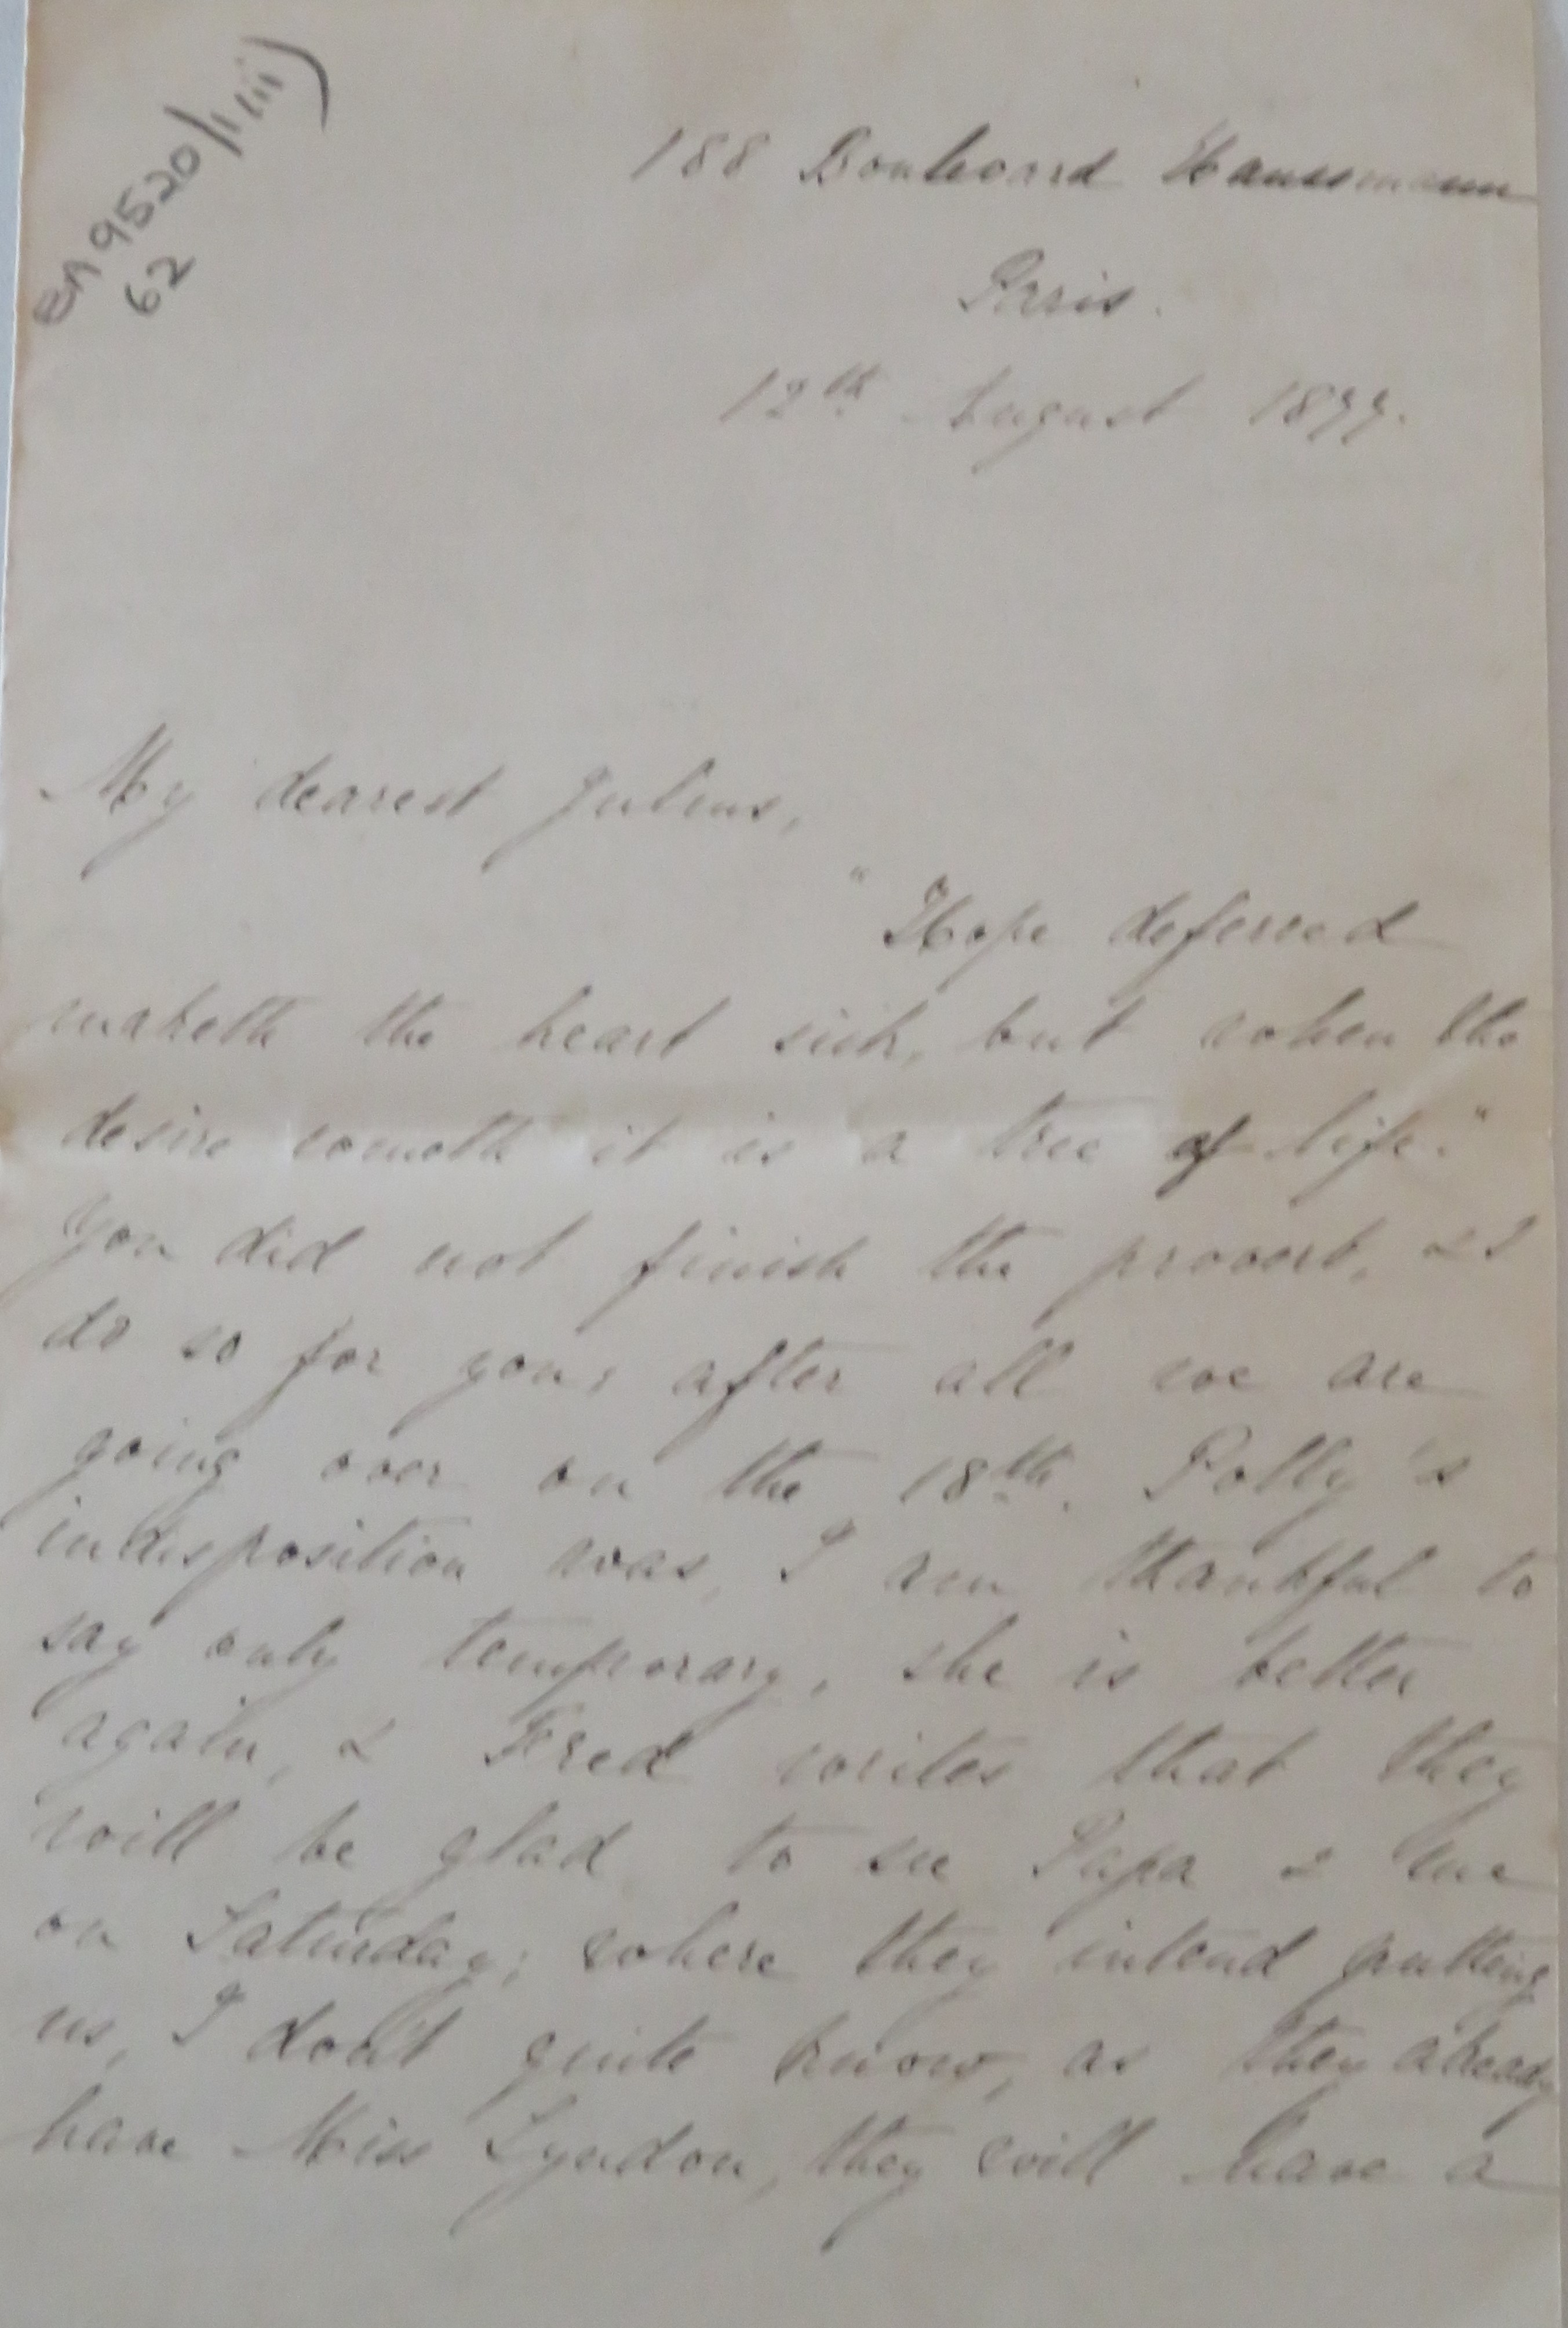 EA 9520/1,iii)
62
188 Boulevard Haussmann
Paris.
12th August 1877.
My dearest Julius,
"Hope deferred
maketh the heart sick, but when the
desire cometh it is a tree of life."
You did not finish the proverb, & I
do so for you; after all we are
going over on the 18th. Polly's
indisposition was, I am thankful to
say only temporary, she is better
again, & Fred writes that they
will be glad to see Papa & me
on Saturday; where they intend putting
us, I don't quite know, as they already
have Miss Lyndon, they will have a